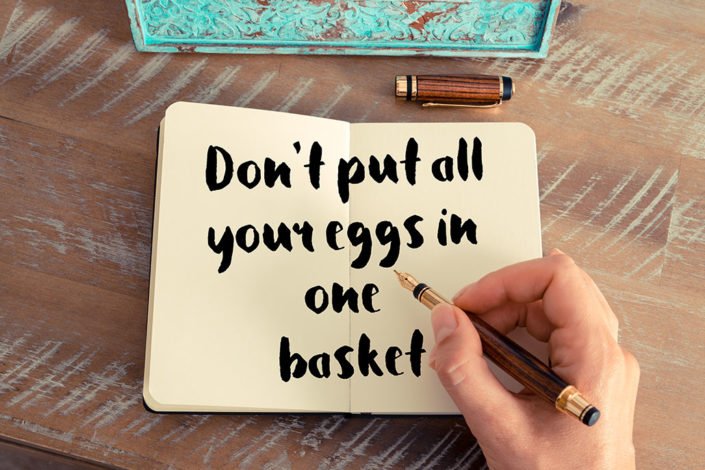 Don't put all
your eggs in
one
basket